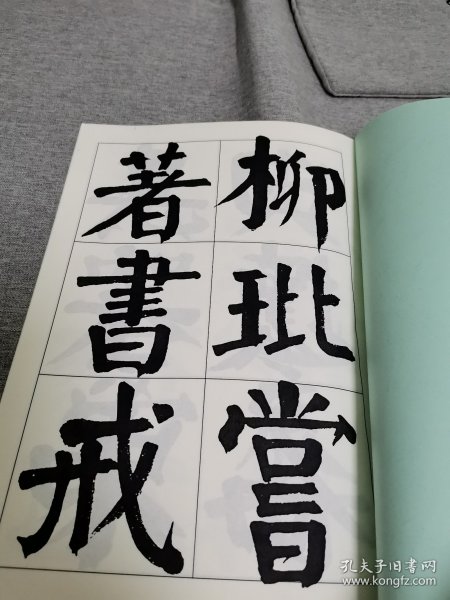 柳玭嘗
著書戒
孔夫子旧书网
www.kongfz.com